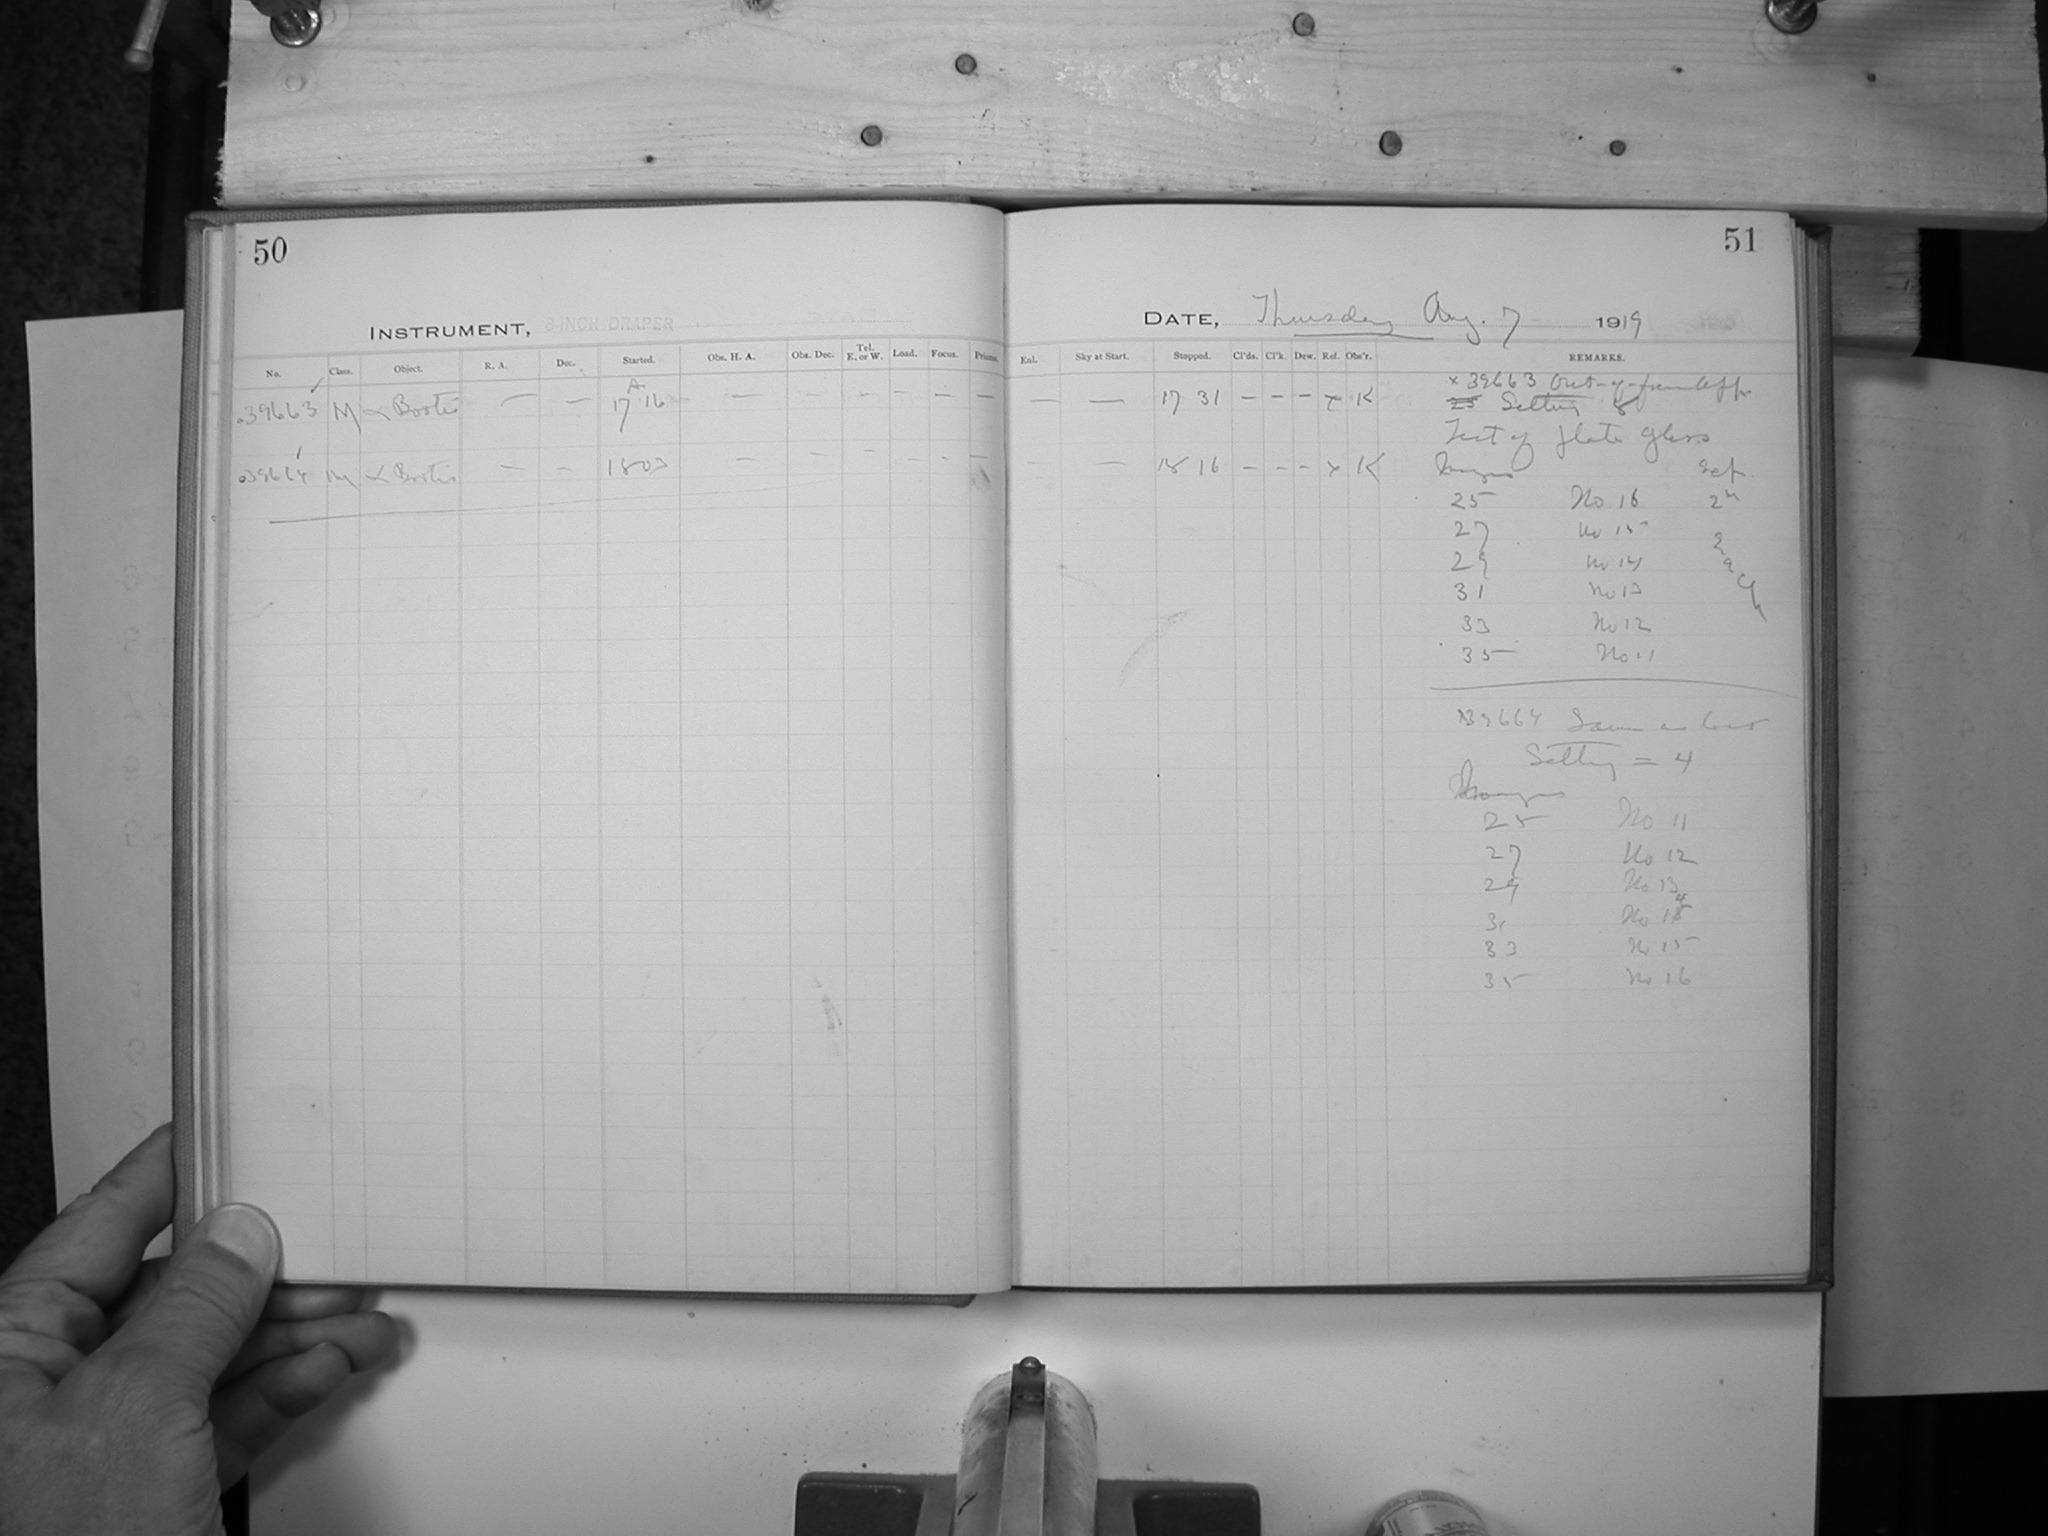 50
INSTRUMENT, 8-INCH DRAPER
No. Class. Object. R. A. Dec. Started. Obs. H. A. Obs. Dec. Tel. E. or W. Load. Focus. Prisms.
39663 M α Bootis — — 17 16 — — — — — —
39664 M α Bootis — — 18 03 — — — — —
51
DATE, Thursday Aug. 7 1919
Eal. Sky at Start. Stopped. Cl'ds. Cl'k. Dew. Ref. Obs'r. REMARKS.
— — 17 31 — — — x K
— — 18 16 — — — x K
x 39663 Out-of-focus
25 Setting
Test of plate glass
Images
25 No 16 2m
27 No 15
29 No 14
31 No 13
33 No 12
35 No 11
each
39664 Same as last
Setting = 4
Images
25 No 11
27 No 12
29 No 13
31 No 14
33 No 15
35 No 16